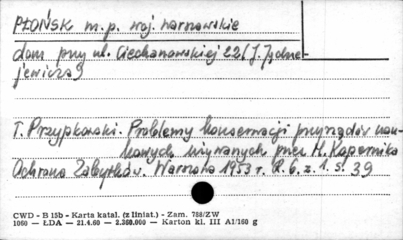 PŁOŃSK m.p. woj. warszawskie
dom przy ul. Ciechanowskiej 22 (J. Jędrze-
jewicza)
T. Przypkowski. Problemy konserwacji przyrządów nau-
kowych używanych przez M. Kopernika
Ochrona Zabytków. Warszawa 1953 r. R. 6. z. 1. s. 39
CWD - B 15b - Karta katal. (z liniat.) - Zam. 788/ZW
1060 — ŁDA — 21.4.60 — 2.360.000 — Karton kl. III A1/160 g